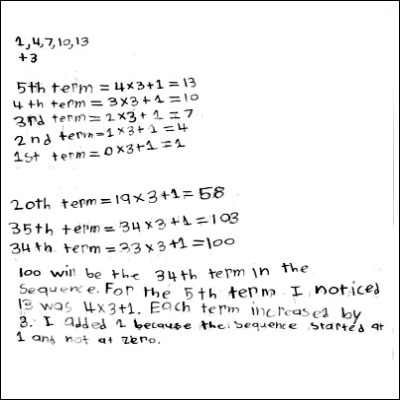 1,4,7,10,13
+3
5th term = 4×3+1=13
4th term = 3×3+1=10
3rd term = 2×3+1=7
2nd term=1×3+1=4
1st term=0×3+1=1
20th term=19×3+1=58
35th term=34×3+1=103
34th term=33×3+1=100
100 will be the 34th term in the
Sequence. For the 5th term I noticed
13 was 4×3+1. Each term increased by
3. I added 1 because the sequence started at
1 and not at zero.